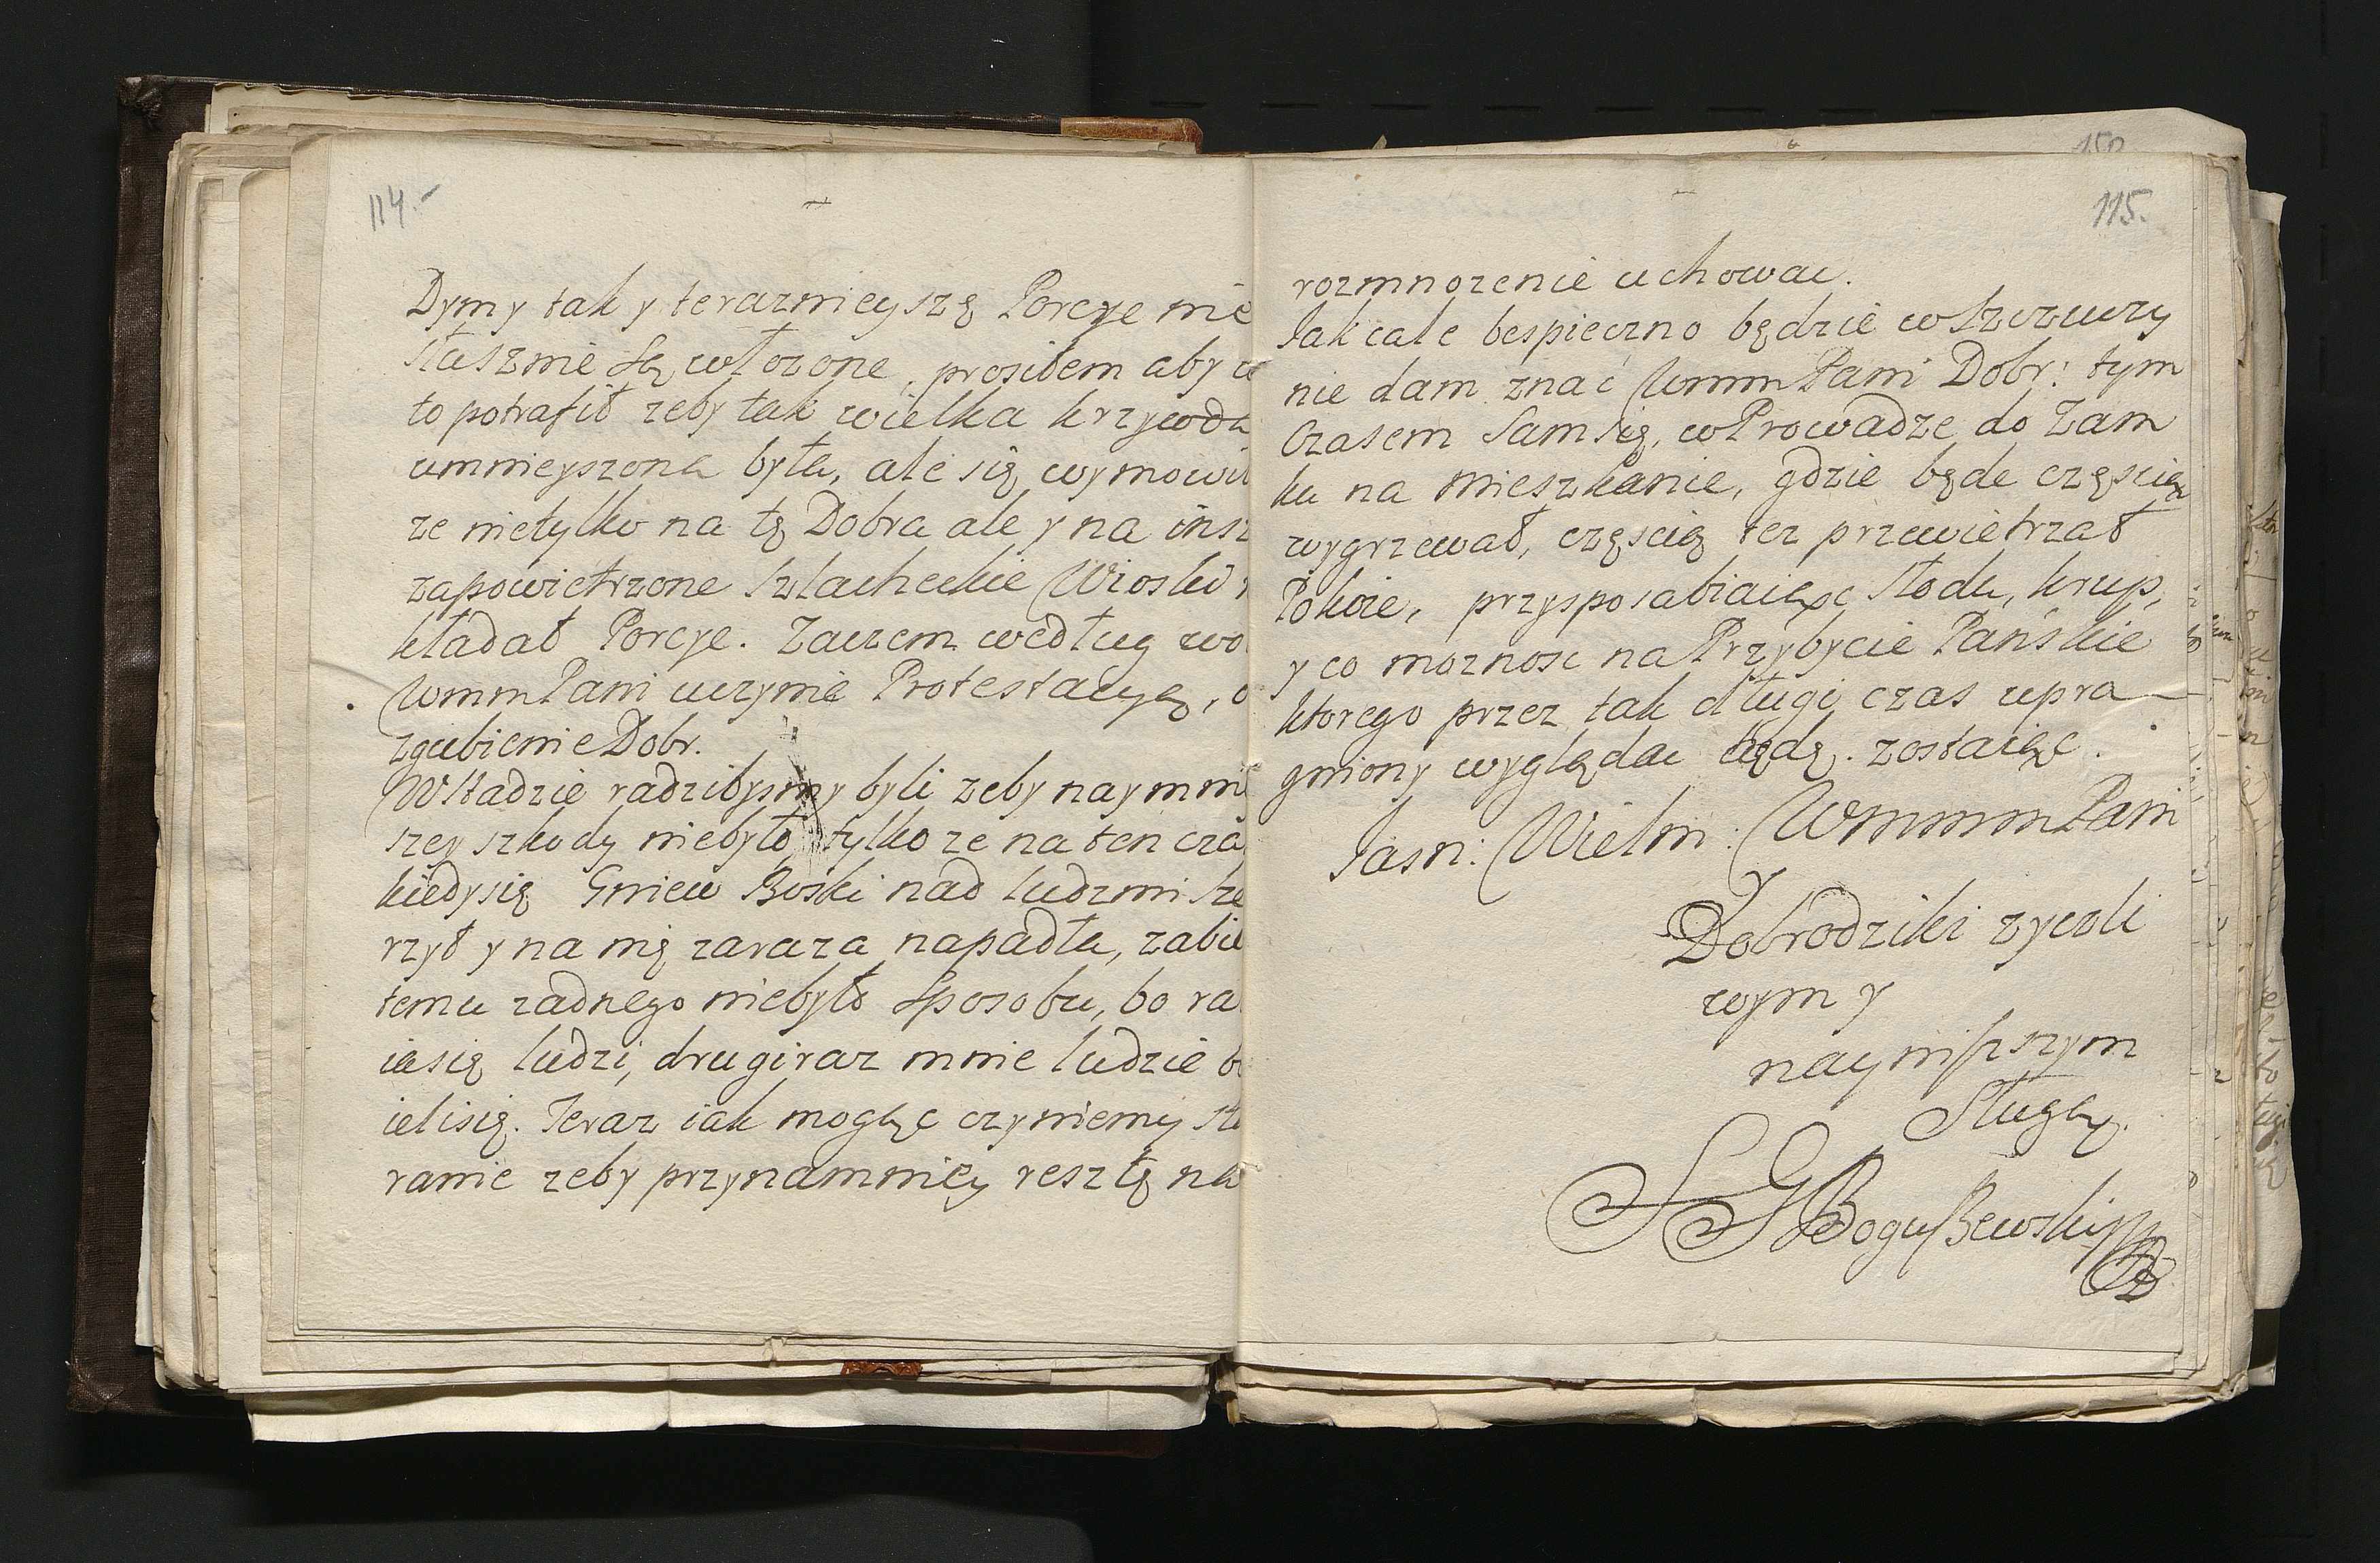 114.-
Dymy tak y terazniey szę Porcye nie
słusznie są włozone, prosiłem aby
to potrafił zeby tak wielka krzywda
ummieyszona była, ale się wymowił
ze nietylko na tę Dobra ale y na insz
zapowietrzone szlacheckie Wioski
kładał Porcye. Zaczem według wo
WmmPani uczynie Protestacyą, o
zgubienie Dobr.
W stadzie radzibysmy byli zeby naymni
szey szkody niebyło tylko ze na ten cza
kiedysię Gniew Boski nad ludzmi sze
rzył y na nię zaraza napadła, zabie
temu zadnego niebyło sposobu, bo ra
ia się ludzi, drugi raz mnie ludzie b
ieli się. Teraz iak mogąc czyniemy sta
ranie zeby przynamniey resztę na
150
115.
rozmnozenie uchowac.
Jak cale bespieczno będzie w Szczuczy
nie dam znać WmmPani Dobr: tym
Czasem Sam się, wProwadze do Zam
ku na mieszkanie, gdzie będe częścią
wygrzewał, częscią tez przewietrzał
Pokoie, przysposabiaiąc słodu, krup,
y co moznosc na Przybycie Pańskie
ktorego przez tak długi czas upra
gniony wyglądac będę. zostaiąc.
Jasn: Wielm: WmmmPani
Dobrodziki zyczli
wym y
nayniszszym
Sługą.
S G Boguszewski mp